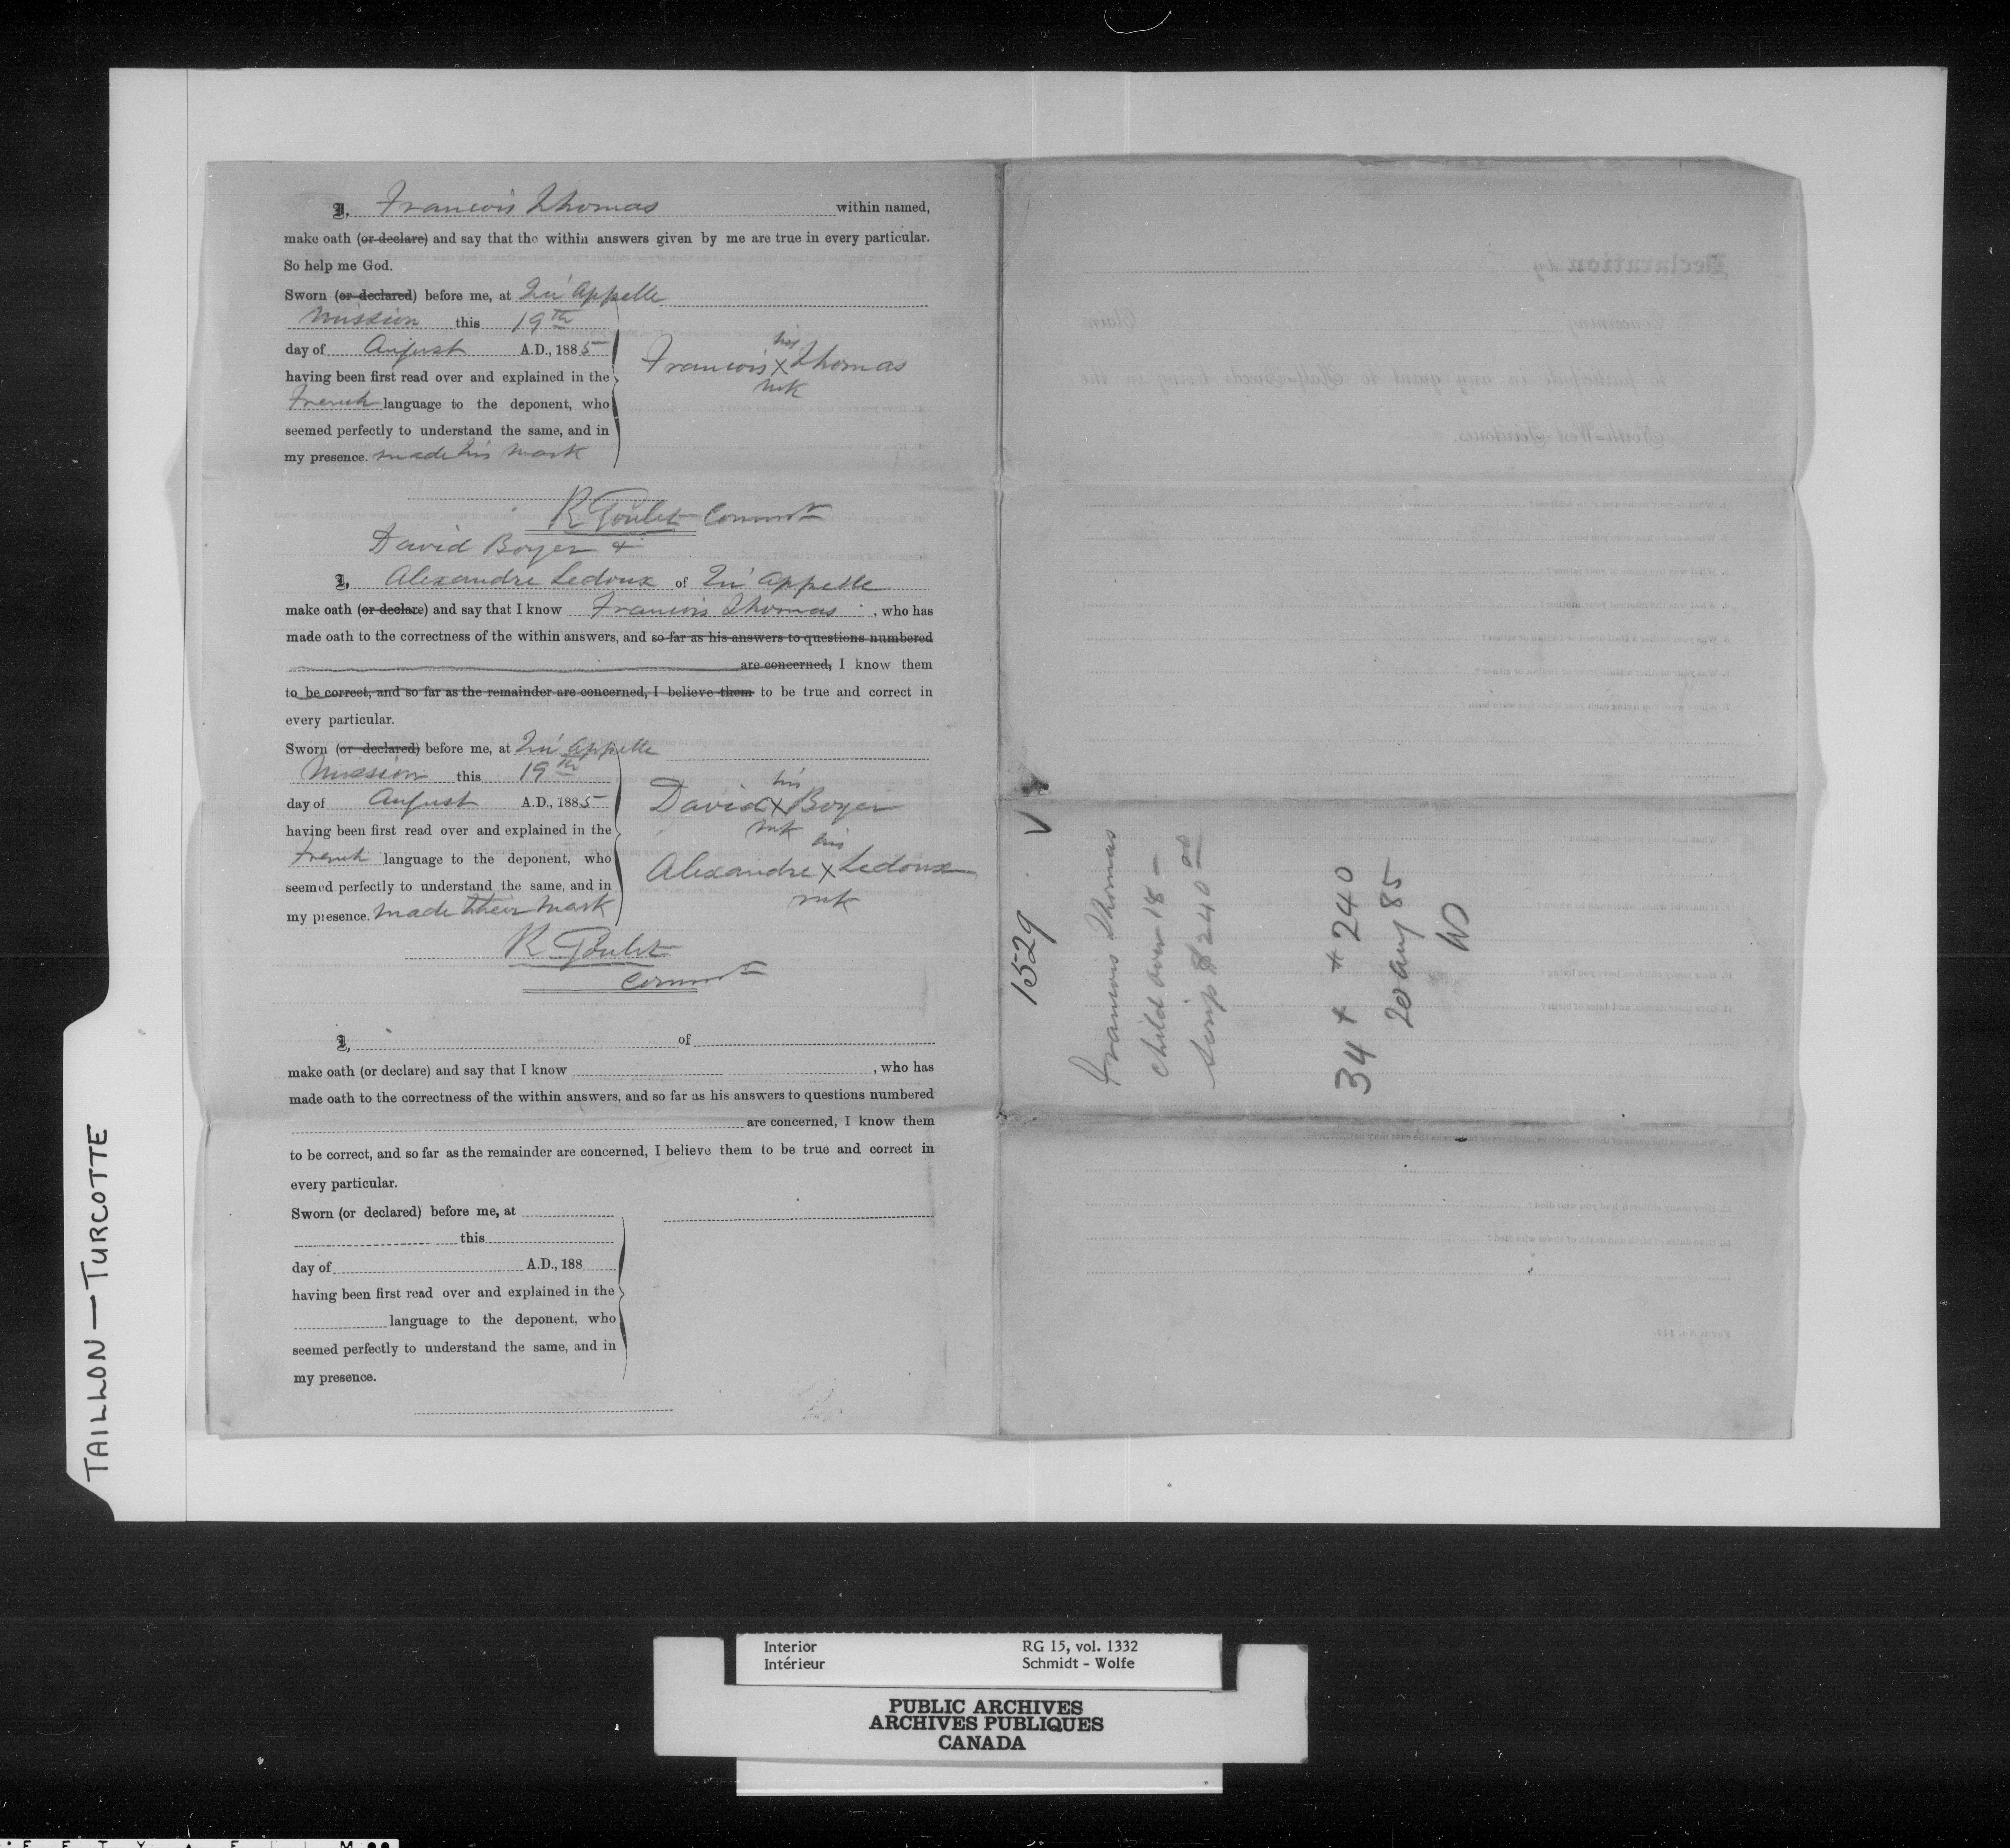 I, Francois Thomas within named,
make oath (or declare) and say that the within answers given by me are true in every particular.
So help me God.
Sworn (or declared) before me, at Qu'Appelle
Mission this 19th
day of August A.D., 1885
having been first read over and explained in the
French language to the deponent, who
seemed perfectly to understand the same, and in
my presence. made his mark
his
Francois X Thomas
mk
R Goulet Commr
David Boyer &
I, Alexandre Ledoux of Qu'Appelle
make oath (or declare) and say that I know Francois Thomas, who has
made oath to the correctness of the within answers, and so far as his answers to questions numbered
are concerned, I know them
to be correct, and so far as the remainder are concerned, I believe them to be true and correct in
every particular.
Sworn (or declared) before me, at Qu'Appelle
Mission this 19th
day of August A.D., 1885
having been first read over and explained in the
French language to the deponent, who
seemed perfectly to understand the same, and in
my presence. made their mark
his
David X Boyer
mk
his
Alexandre X Ledoux
mk
R Goulet
Commr
I, of
make oath (or declare) and say that I know , who has
made oath to the correctness of the within answers, and so far as his answers to questions numbered
are concerned, I know them
to be correct, and so far as the remainder are concerned, I believe them to be true and correct in
every particular.
Sworn (or declared) before me, at
this
day of A.D., 188
having been first read over and explained in the
language to the deponent, who
seemed perfectly to understand the same, and in
my presence.
1529 √
Francois Thomas
Child over 18 –
Scrip $240 00
34 + # 240
20 aug 85
TAILLON — TURCOTTE
Declaration by
Concerning Claim
to participate in any grant to Half-Breeds living in the
North-West Territories.
Interior RG 15, vol. 1332
Intérieur Schmidt - Wolfe
PUBLIC ARCHIVES
ARCHIVES PUBLIQUES
CANADA